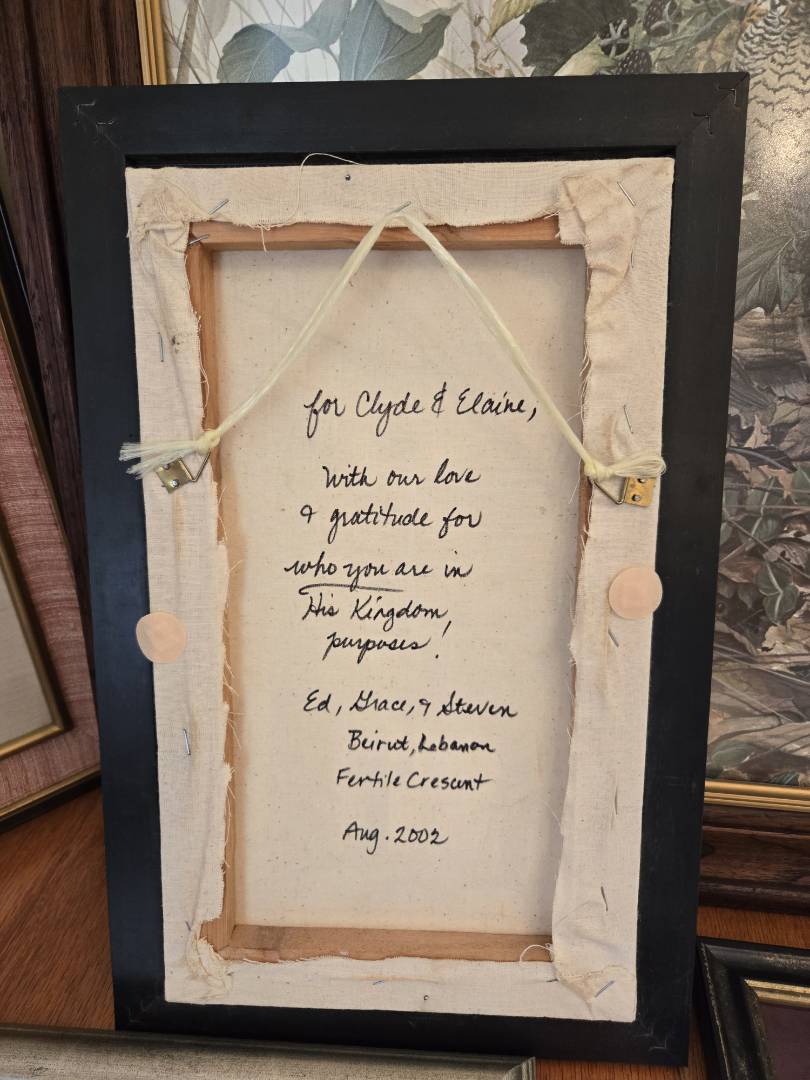 for Clyde & Elaine,
With our love
& gratitude for
who you are in
His Kingdom
purposes!
Ed, Grace, & Steven
Beirut, Lebanon
Fertile Crescent
Aug. 2002